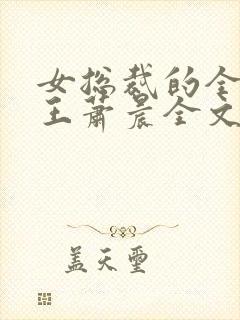 女总裁的全
王萧晨全文
盖天玺